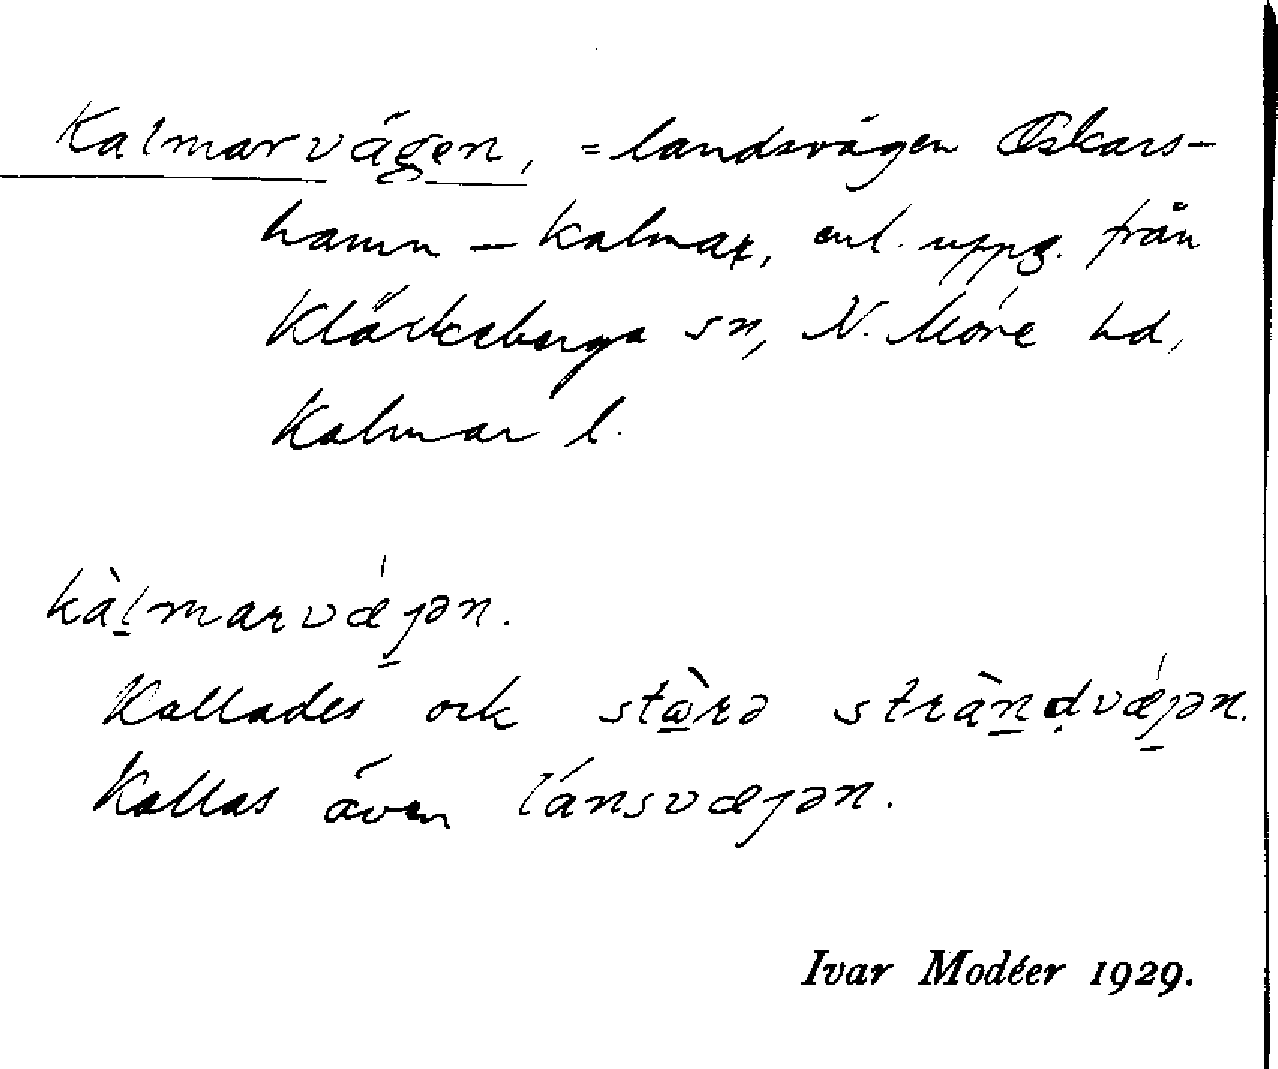 Kalmarvägen, = landsvägen Oskars-
hamn – Kalmar, enl. uppg. från
Kläckeberga sn, N. Möre hd,
Kalmar l.
kàl̠marvǽj̠ən.
Kallades ock stɷ̠̀rə stràn̠ḍvǽj̠ən.
Kallas även lánsvæjən.
Ivar Modéer 1929.